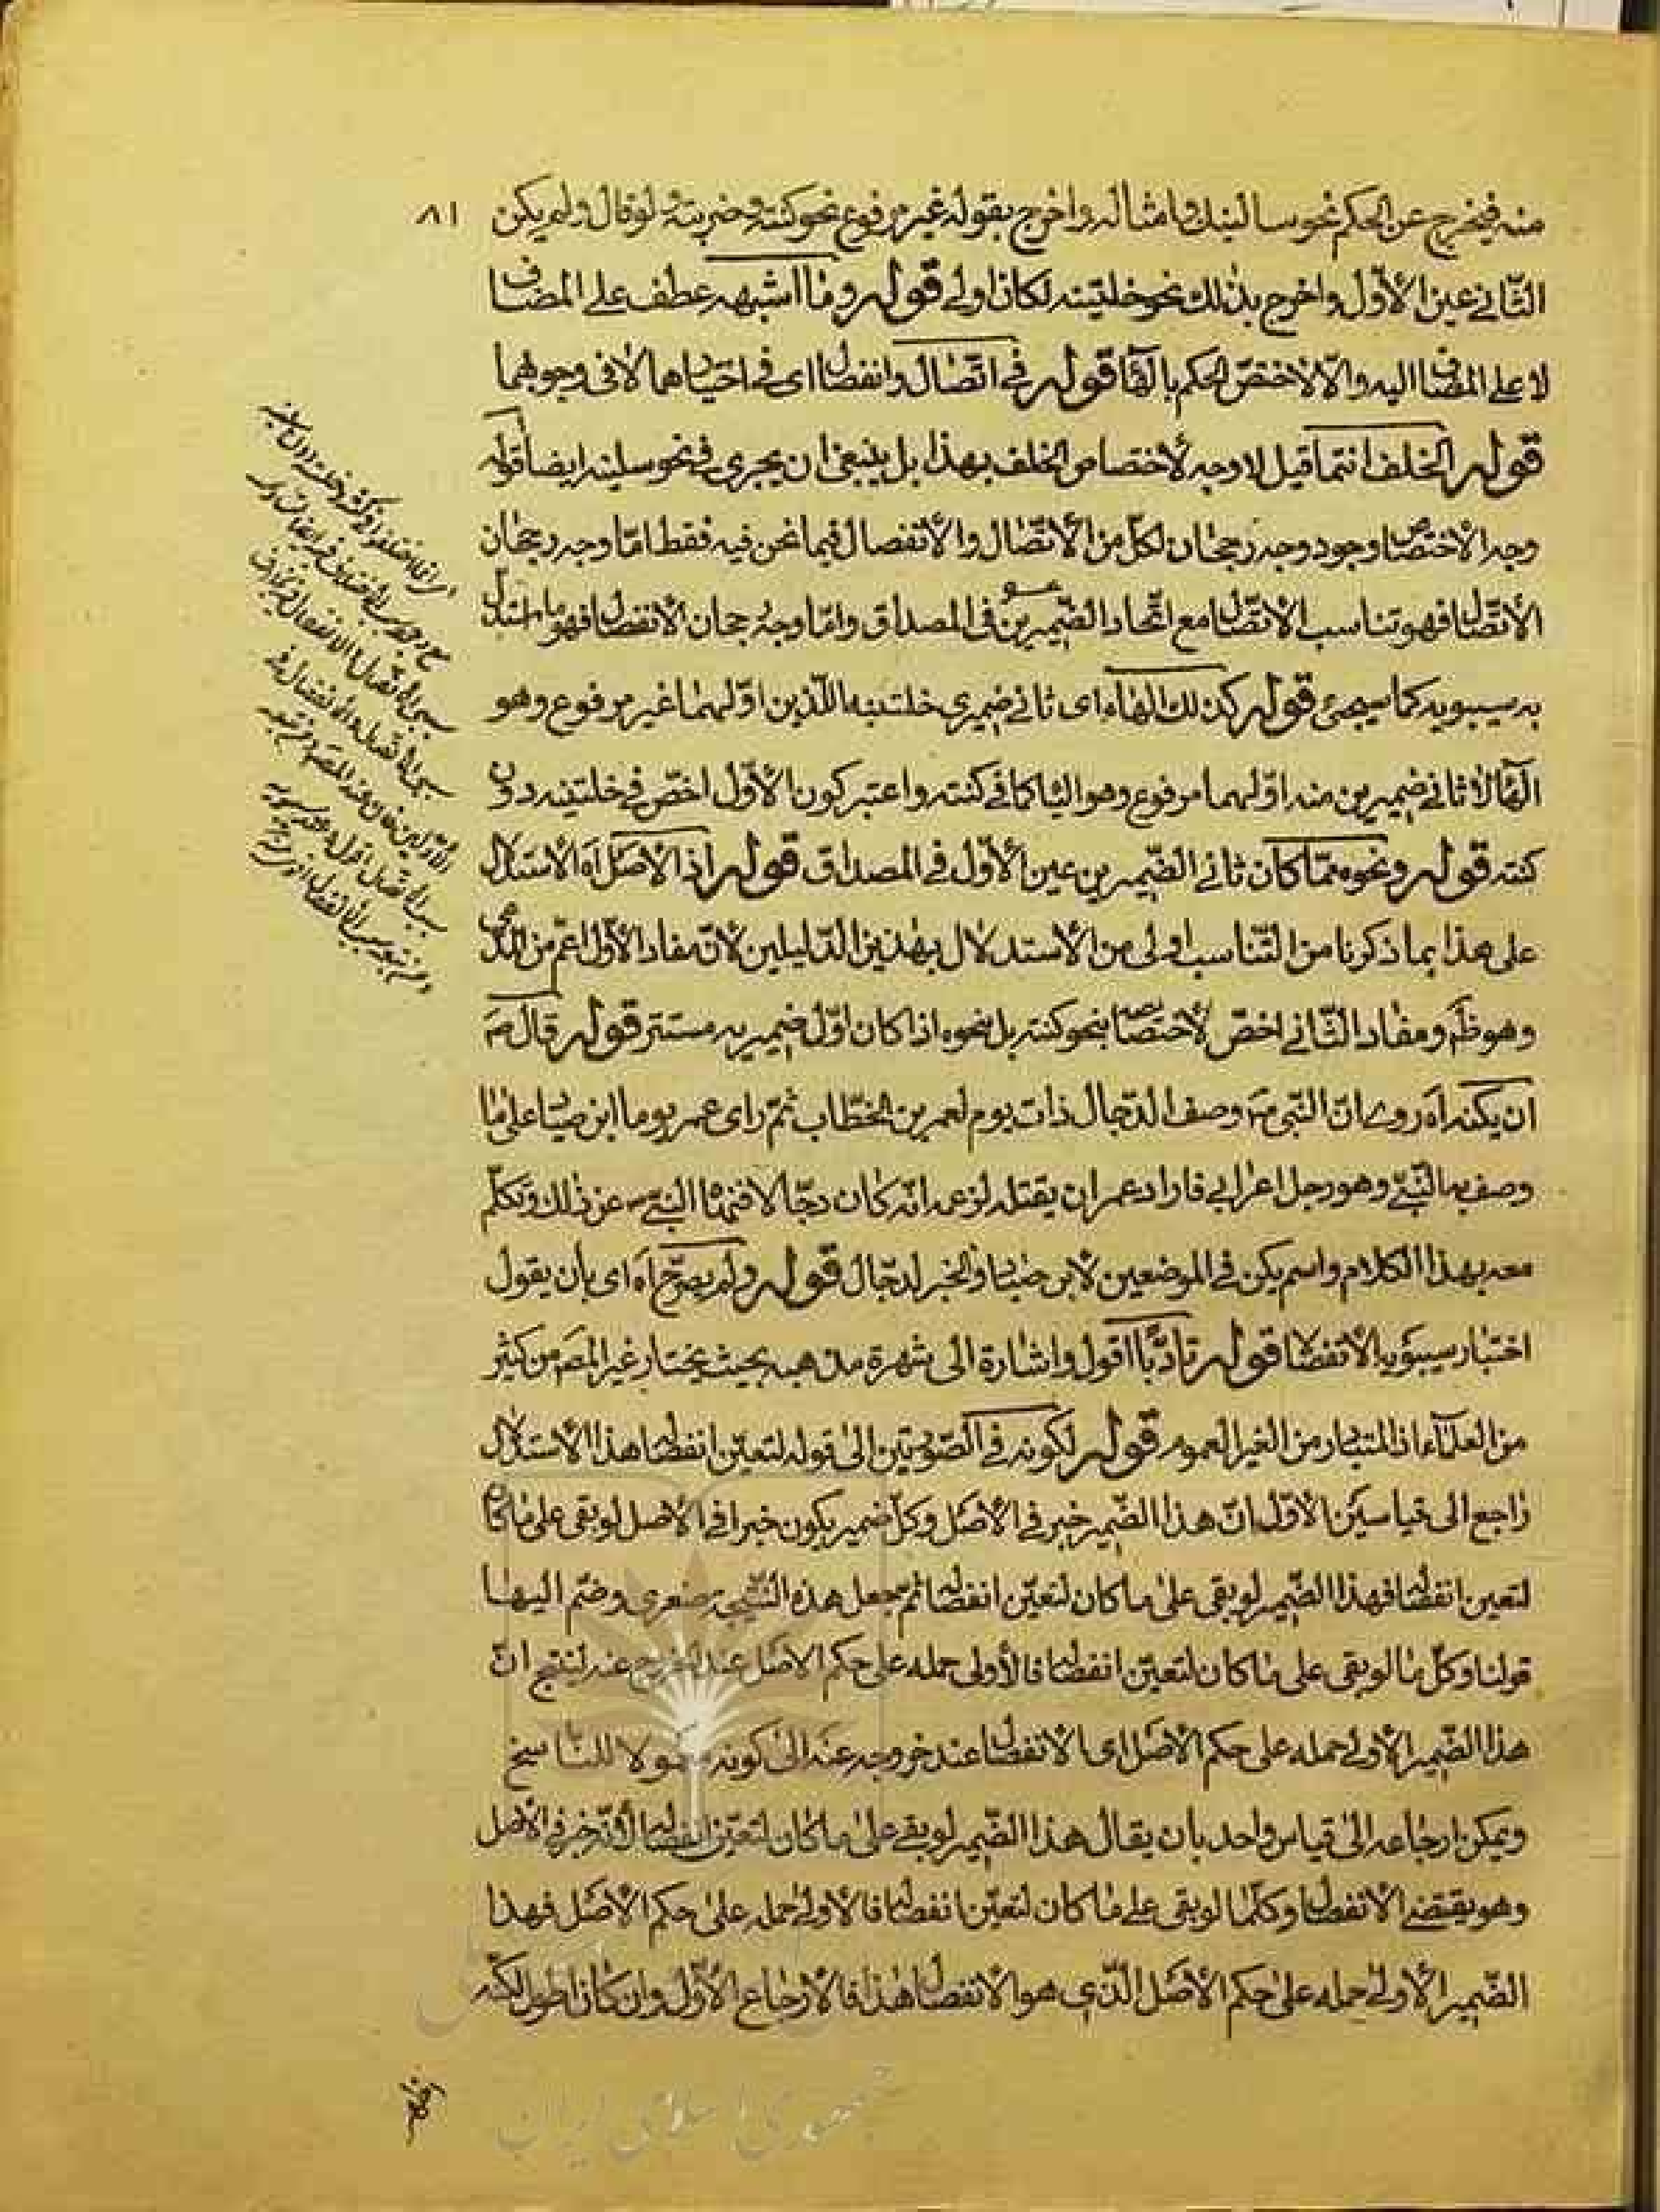 منه فيخرج عن الحكم نحو سالنيك وامثاله واخرج بقوله غير مرفوع نحو كنته وضربته ولو قال ولم يكن
٨١
الثاني عين الأول واخرج بذلك نحو خلتينه لكان اولى قوله وما اشبهه عطف على المضاف
لا على المضاف اليه والا لاختص الحكم بالهاء قوله في اتصال وانفصال اى في اختيارهما لا في وجوبهما
قوله الخلف انتما قيل لا وجه لاختصاص الخلف بهذا بل ينبغي ان يجرى في نحو سلنيه ايضا قوله
وجه الاختصاص وجود وجه رجحان لكل من الاتصال والانفصال فيما نحن فيه فقط اما وجه رجحان
الاتصال فهو تناسب الاتصال مع اتحاد الضميرين في المصداق واما وجه رجحان الانفصال فهو ما استدل
به سيبويه كما سيجئ قوله كذلك الهاء اى ثاني ضميرى خلتنيه اللذين اولهما غير مرفوع وهو
الهاء لا ثاني ضميرين منه اولهما مرفوع وهو الياء كما في كنته واعتبر كون الأول اخص في خلتينه دون
كنته قوله ونحوه مما كان ثاني الضميرين عين الأول في المصداق قوله اذ الاصل آه الاستدلال
على هذا بما ذكرنا من التناسب اولى من الاستدلال بهذين الدليلين لان مفاد الأول اعم من المدعى
وهو ظ ومفاد الثاني اخص لاختصاصه بنحو كنته بل نحوه اذا كان اولى ضميريه مستتر قوله قال ص
ان يكنه آه روى ان النبي ص وصف الدجال ذات يوم لعمر بن الخطاب ثم راى عمر يوما ابن صياد على ما
وصف به النبي وهو رجل اعرابي فاراد عمر ان يقتله لزعمه انه كان دجالا فنهاه النبي ص عن ذلك وتكلم
معه بهذا الكلام واسم يكن في الموضعين لابن صياد والخبر لدجال قوله ولم يصرح آه اى بأن يقول
اختيار سيبويه الانفصال قوله تادبا اقول واشارة الى شهرة مذهبه بحيث يختار غير المص من كثير
من العلماء اذ المتبادر من الغير العموم قوله لكونه في الصورتين الى قوله لتعين انفصاله هذا الاستدلال
راجع الى قياسين الاول ان هذا الضمير خبر في الأصل وكل ضمير يكون خبرا في الاصل لو بقى على ما كان
لتعين انفصاله فهذا الضمير لو بقى على ما كان لتعين انفصاله ثم جعل هذه النتيجة صغرى وضم اليها
قولنا وكل ما لو بقى على ما كان لتعين انفصاله فالأولى حمله على حكم الاصل عند الخروج عنه لينتج ان
هذا الضمير الأولى حمله على حكم الأصل اى الانفصال عند خروجه عنه الى كونه معمولا للناسخ
ويمكن ارجاعه الى قياس واحد بان يقال هذا الضمير لو بقى على ما كان لتعين انفصاله لانه خبر في الاصل
وهو يقتضى الانفصال وكلما لو بقى على ما كان لتعين انفصاله فالأولى حمله على حكم الأصل فهذا
الضمير الأولى حمله على حكم الأصل الذى هو الانفصال هذا فالارجاع الأول وان كان اطول لكنه